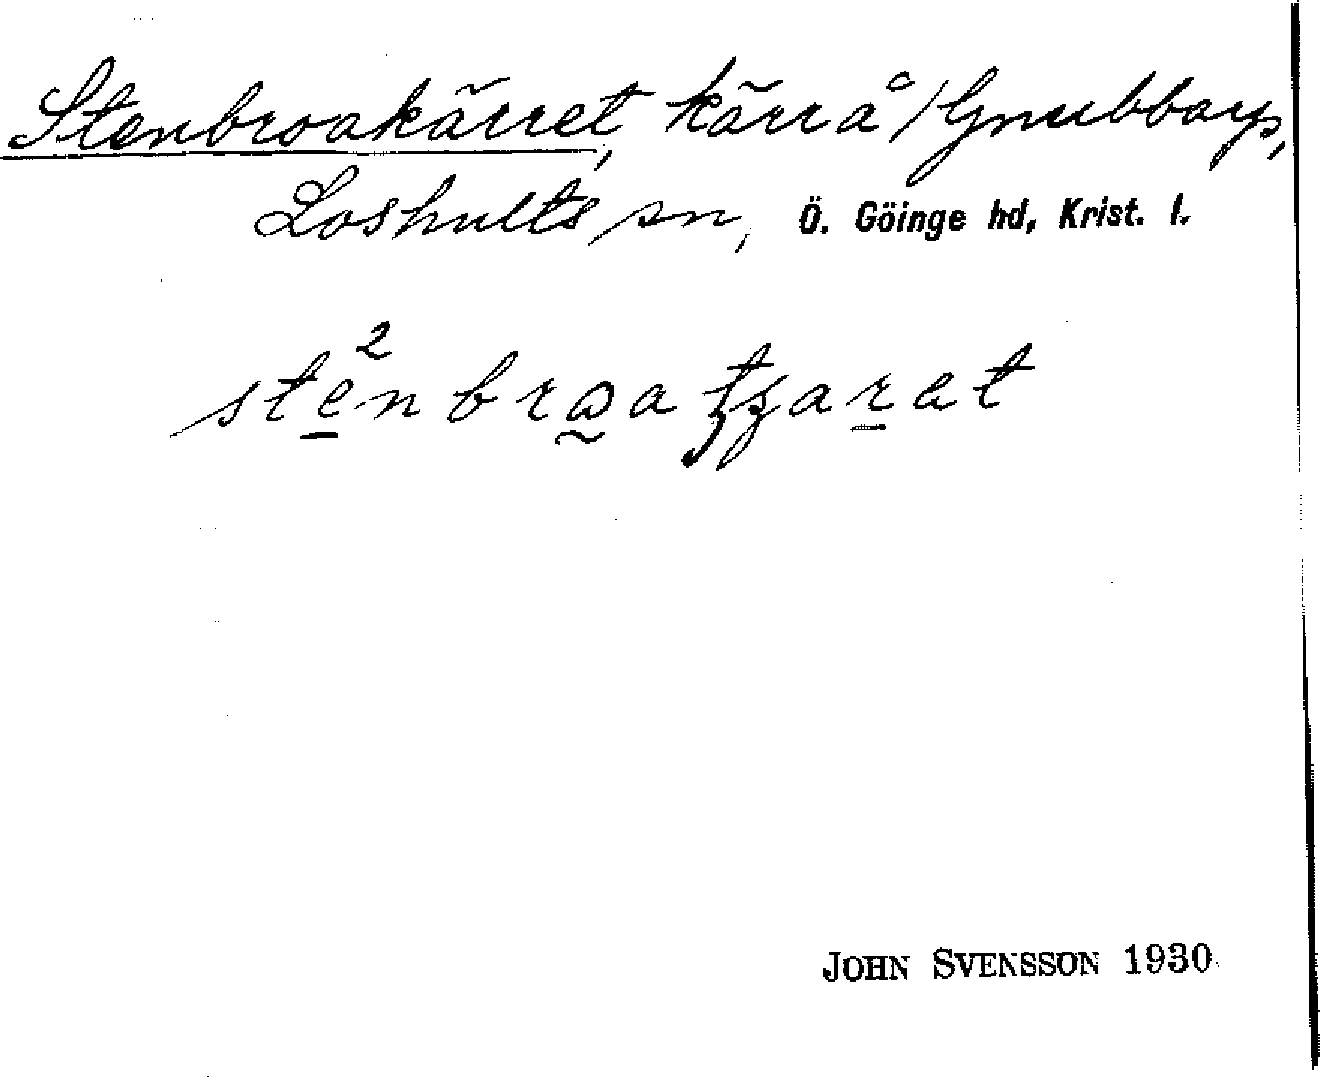 Stenbroakärret, kärr å Gnubbarp,
Loshults sn, Ö. Göinge hd, Krist. l.
JOHN SVENSSON 1930